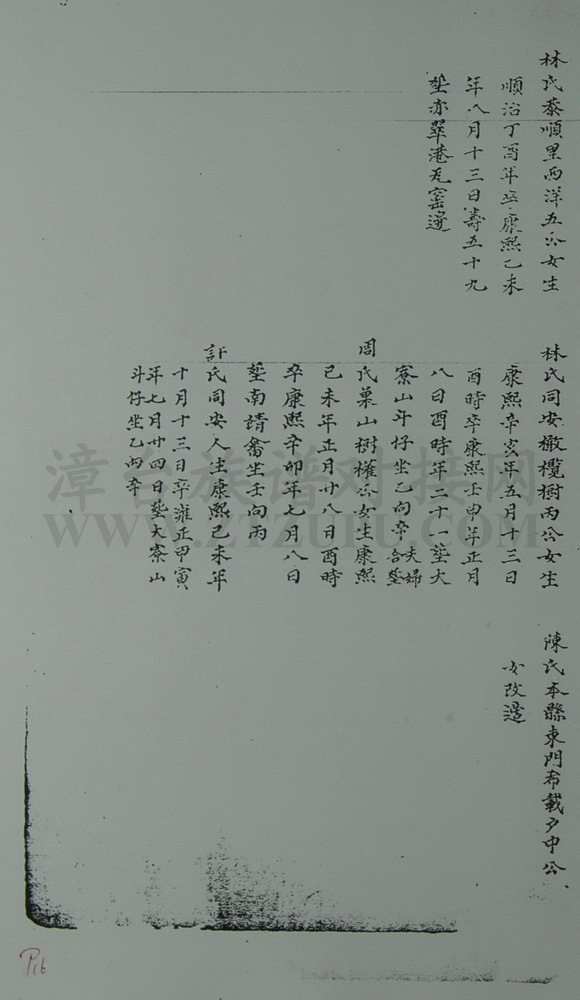 林氏泰順里西洋五公女生
順治丁酉年卒康熙乙未
年八月十三日壽五十九
塟亦翠港瓦窑邊
林氏同安橄欖樹丙公女生
康熙辛亥年五月十三日
酉時卒康熙壬申年正月
八日酉時年二十一塟大
寮山斗仔坐乙向辛夫婦合塟
周氏菓山樹權公女生康熙
己未年正月廿八日酉時
卒康熙辛卯年七月八日
塟南請畬坐壬向丙
許氏同安人生康熙己未年
十月十三日卒雍正甲寅
年七月廿四日塟大寮山
斗仔坐乙向辛
陳氏本縣東門希載戸中公
女改適
漳台族谱对接网
WWW.ZTZUPU.COM
P16